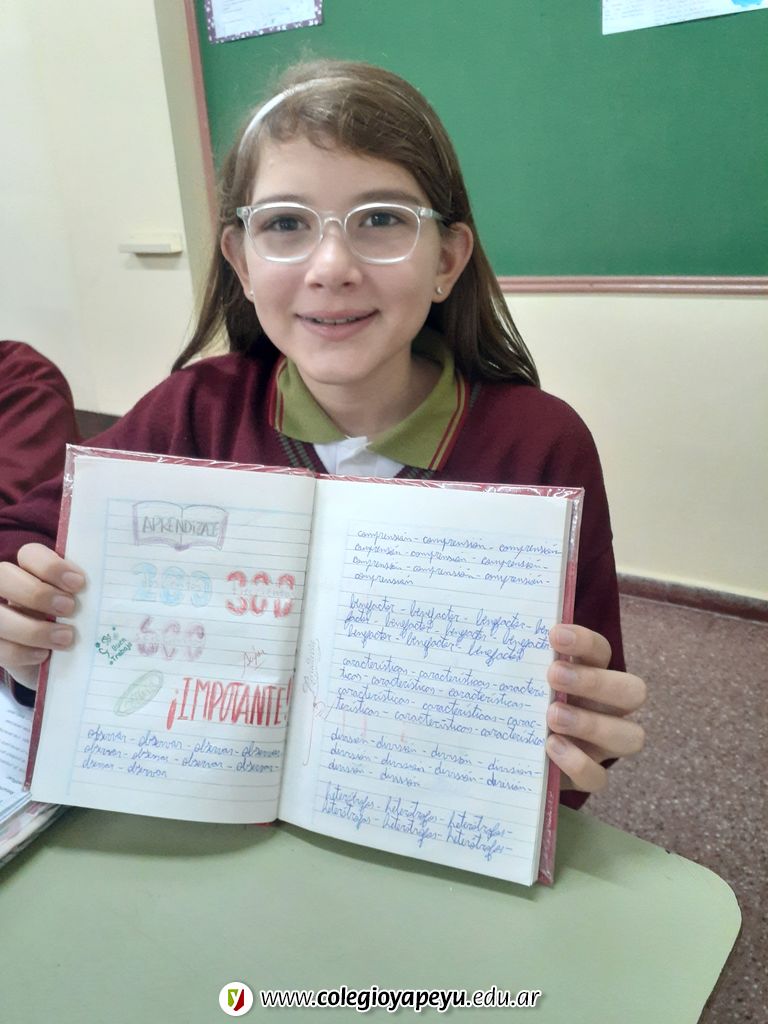 APRENDIZAJ
200 300
600
Buen
Trabajo
¡IMPOTANTE!
observar - observar - observar - observar
observar - observar - observar - observar -
observar - observar
comprensión - comprensión - comprensión
comprensión - comprensión - comprensión -
comprensión - comprensión - comprensión -
comprensión
benefactor - benefactor - benefactor - bene
factor - benefactor - benefactor - benefactor
benefactor - benefactor - benefactor
características - características - caracterís-
ticas - características - características -
características - características - carac-
terísticas - características - características
división - división - división - división -
división - división - división - división -
división - división
heterótrofos - heterótrofos - heterótrofos -
heterótrofos - heterótrofos - heterótrofos -
www.colegioyapeyu.edu.ar